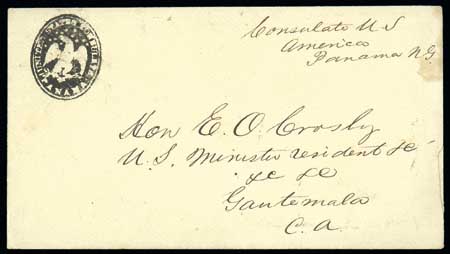 Consulate U S
America
Panama N.G.
Hon E. O. Crosby
U. S. Minister resident &c
&c &c
Gautemala
C. A.